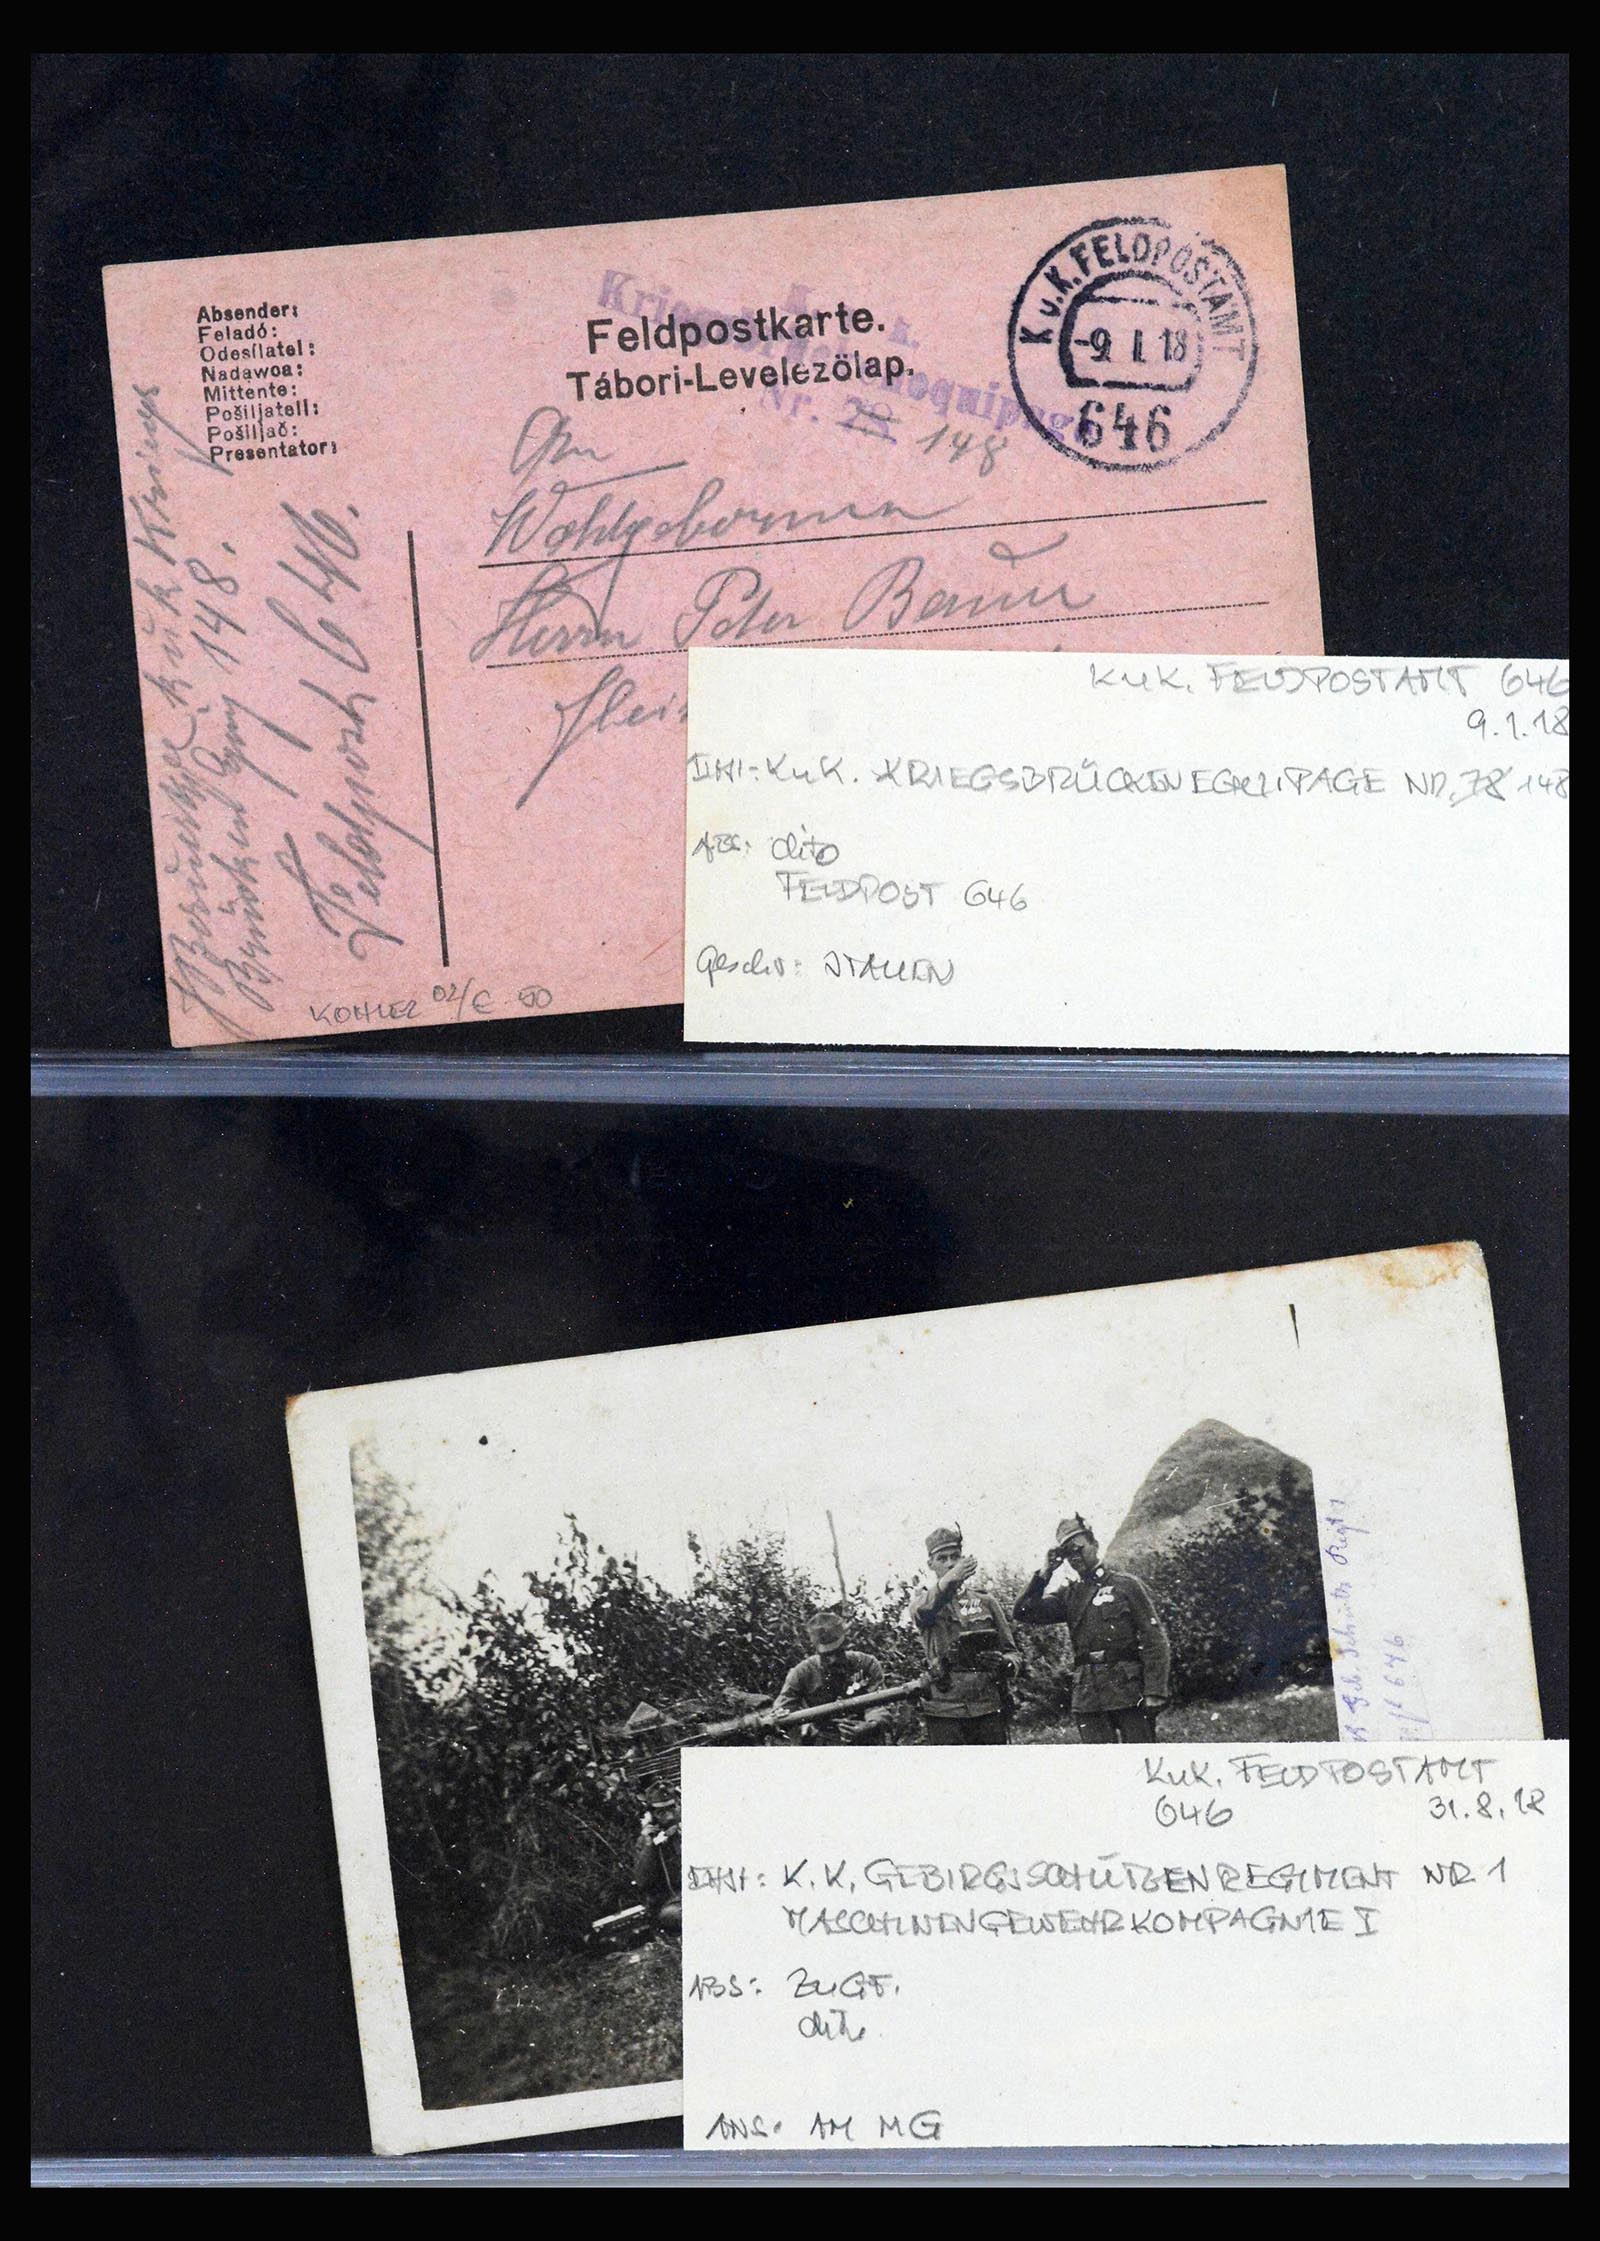 Absender:
Feladó:
Odesílatel:
Nadawca:
Mittente:
Pošiljatelj:
Pošiljač:
Presentator:
Feldpostkarte.
Tábori-Levelezőlap.
Nr. 148
K.u.K. FELDPOSTAMT
-9. I. 18
646
An
Wohlgeboren
Herrn Peter Bauer
k. u. k. Kriegs
Brücken Equ 148.
Feldpost 646.
KÖHLER 02/€ 50
KuK. FELDPOSTAMT 646
9.1.18
KuK. KRIEGSBRÜCKENEQUIPAGE NR. 78 148
ABS: dito
FELDPOST 646
Geschr: ITALIEN
Geb. Schütz Regt 1
646
KuK. FELDPOSTAMT
646 31.8.18
K.K. GEBIRGSSCHÜTZENREGIMENT NR 1
MASCHINENGEWEHRKOMPAGNIE I
ABS: ZUGF.
dito
ANS: AM MG